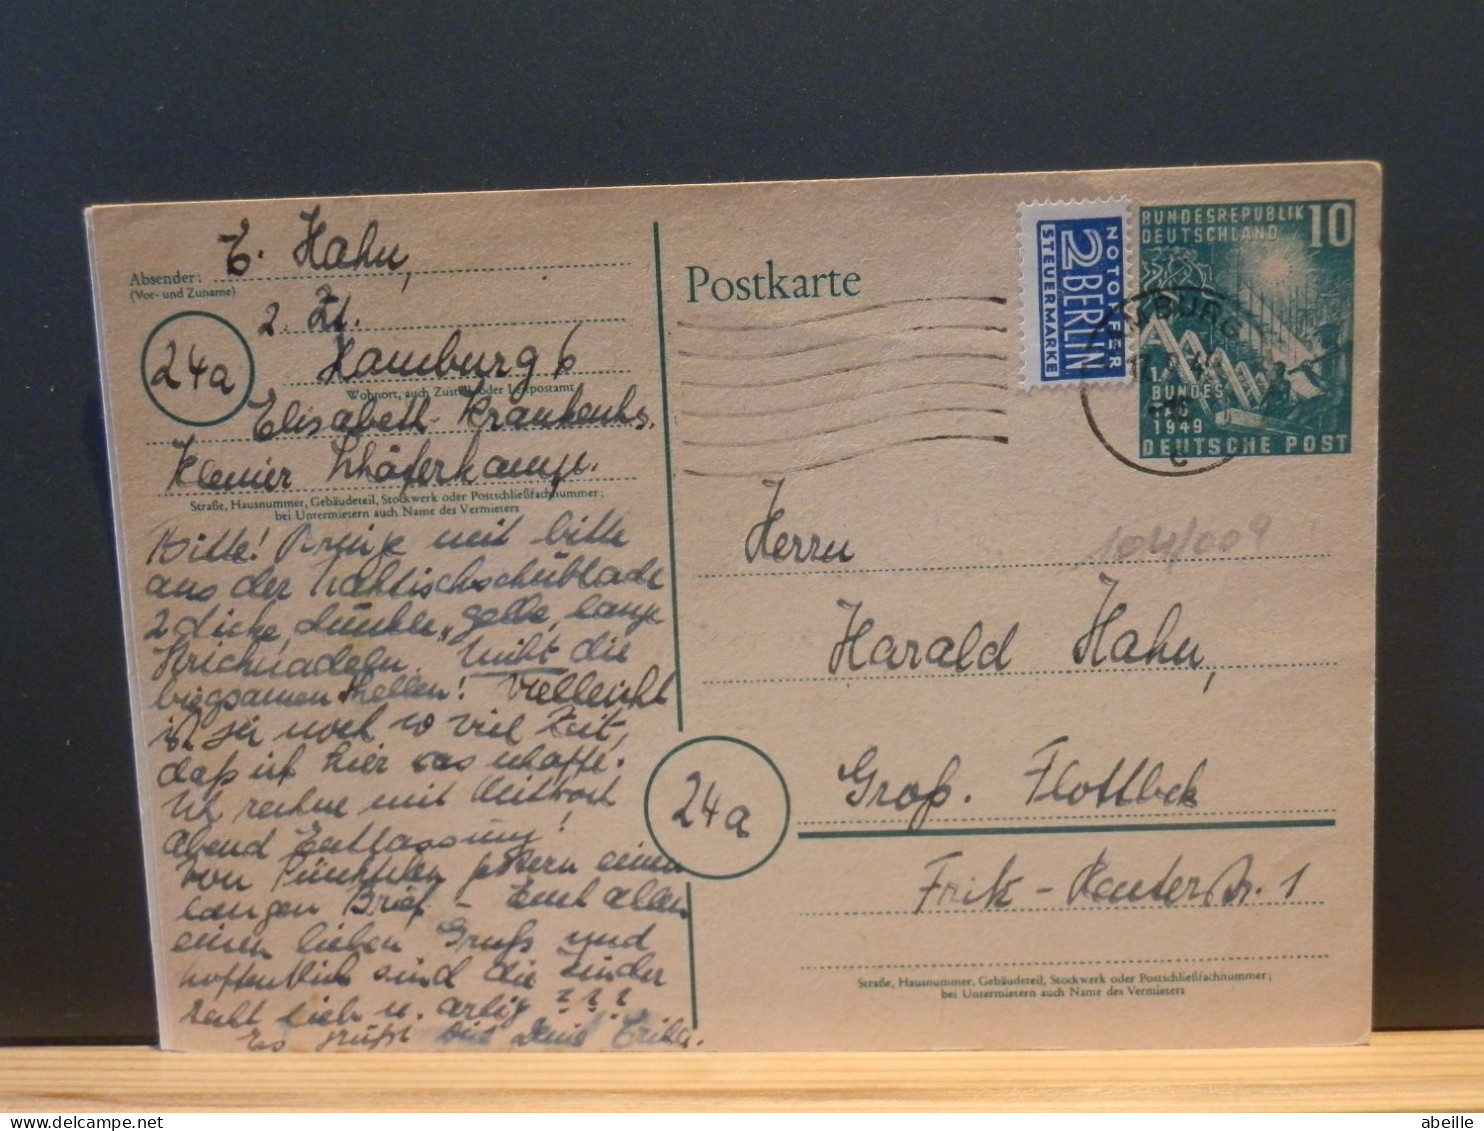 E. Hahn,
Absender:
(Vor- und Zuname)
z. Zt.
24a
Hamburg 6
Wohnort, auch Zustell- oder Leitpostamt
Elisabeth-Krankenhs.
Kleiner Schäferkamp.
Straße, Hausnummer, Gebäudeteil, Stockwerk oder Postschließfachnummer;
bei Untermietern auch Name des Vermieters
Bitte! Bringe mit bitte
aus der Nähtischschublade
2 dicke, dunkle, gelbe, lange
Stricknadeln. Nicht die
biegsamen hellen! Vielleicht
ist ja noch so viel Zeit,
daß ich hier was schaffe.
Ich rechne mit Mittwoch
abend Entlassung!
Von gestern einen
langen Brief - Euch allen
einen lieben Gruß und
hoffentlich sind die Kinder
recht lieb u. artig ???
Es grüßt Deine Erika.
Postkarte
NOTOPFER
2 BERLIN
STEUERMARKE
BUNDESREPUBLIK 10
DEUTSCHLAND
HAMBURG
1.
BUNDES
TAG
1949
DEUTSCHE POST
104/009
Herrn
Harald Hahn,
24a
Groß. Flottbek
Fritz-Reuter Str. 1
Straße, Hausnummer, Gebäudeteil, Stockwerk oder Postschließfachnummer;
bei Untermietern auch Name des Vermieters
abeille